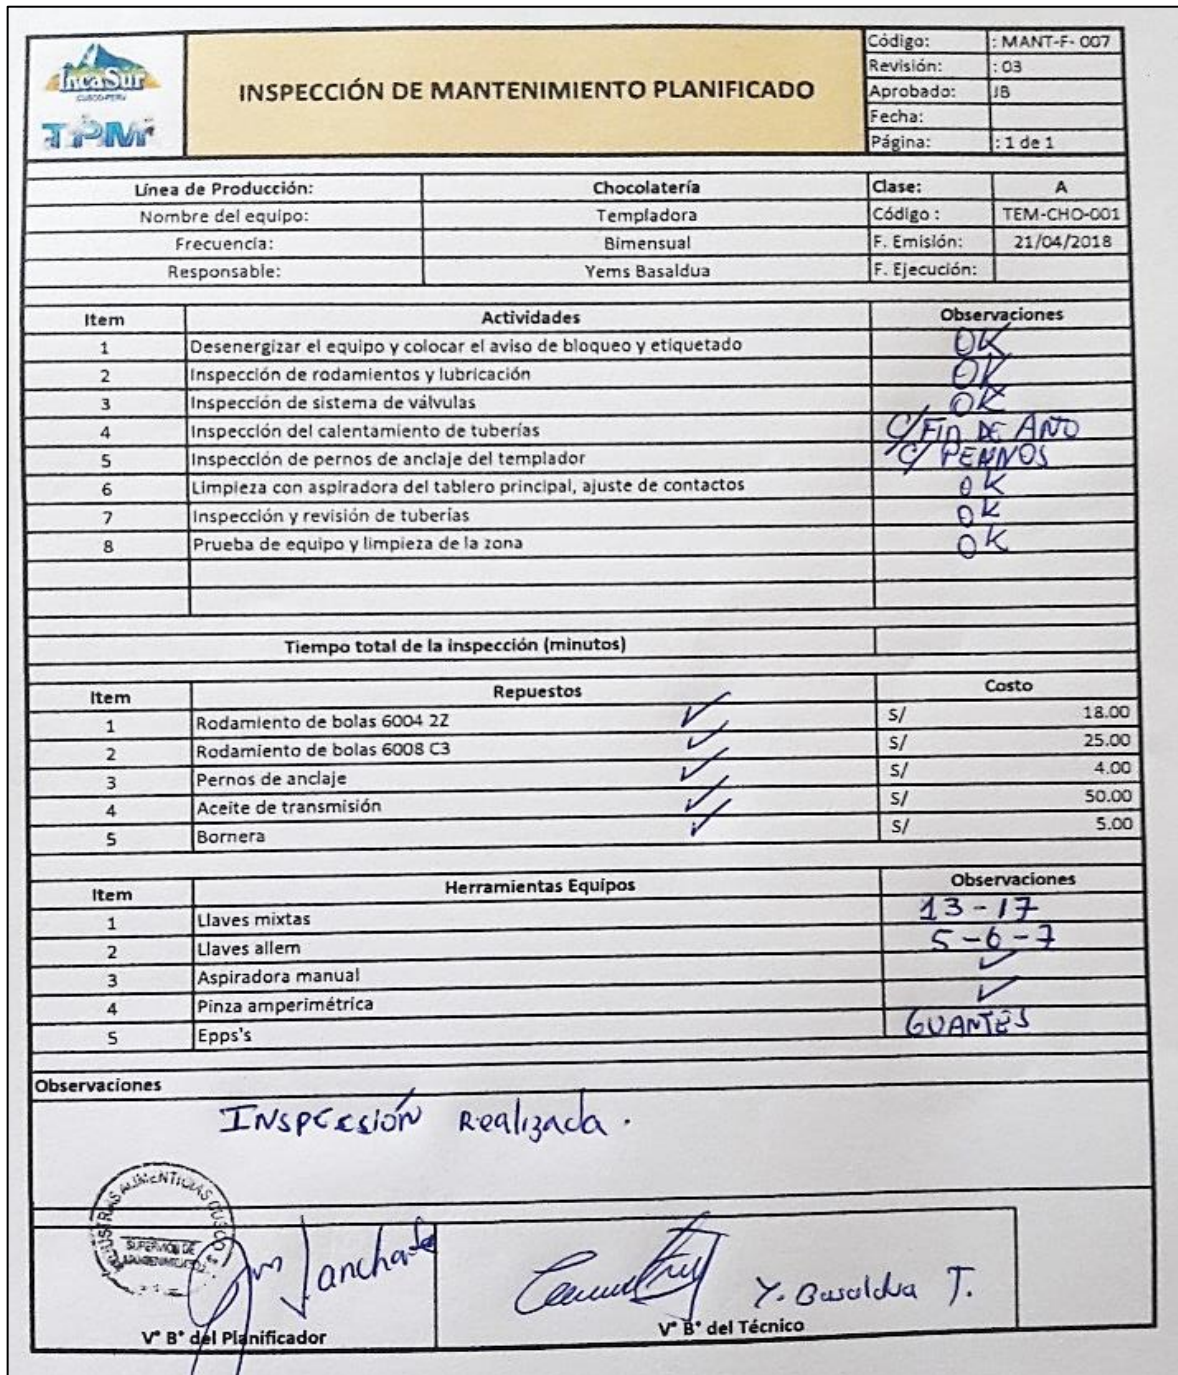 IncaSur
CUSCO-PERU
TPM
INSPECCIÓN DE MANTENIMIENTO PLANIFICADO
Código: : MANT-F- 007
Revisión: : 03
Aprobado: JB
Fecha:
Página: : 1 de 1
Línea de Producción: Chocolatería Clase: A
Nombre del equipo: Templadora Código : TEM-CHO-001
Frecuencia: Bimensual F. Emisión: 21/04/2018
Responsable: Yems Basaldua F. Ejecución:
Item Actividades Observaciones
1 Desenergizar el equipo y colocar el aviso de bloqueo y etiquetado OK
2 Inspección de rodamientos y lubricación OK
3 Inspección de sistema de válvulas OK
4 Inspección del calentamiento de tuberías C/FIN DE AÑO
5 Inspección de pernos de anclaje del templador C/ PERNOS
6 Limpieza con aspiradora del tablero principal, ajuste de contactos OK
7 Inspección y revisión de tuberías OK
8 Prueba de equipo y limpieza de la zona OK
Tiempo total de la inspección (minutos)
Item Repuestos Costo
1 Rodamiento de bolas 6004 2Z ✓ S/ 18.00
2 Rodamiento de bolas 6008 C3 ✓ S/ 25.00
3 Pernos de anclaje ✓ S/ 4.00
4 Aceite de transmisión ✓ S/ 50.00
5 Bornera ✓ S/ 5.00
Item Herramientas Equipos Observaciones
1 Llaves mixtas 13-17
2 Llaves allem 5-6-7
3 Aspiradora manual ✓
4 Pinza amperimétrica ✓
5 Epps's GUANTES
Observaciones
INSPECSIÓN Realizada.
ALIMENTICIAS CUSCO
SUPERVISIÓN DE
MANTENIMIENTO
Y. Basaldua T.
V° B° del Planificador V° B° del Técnico